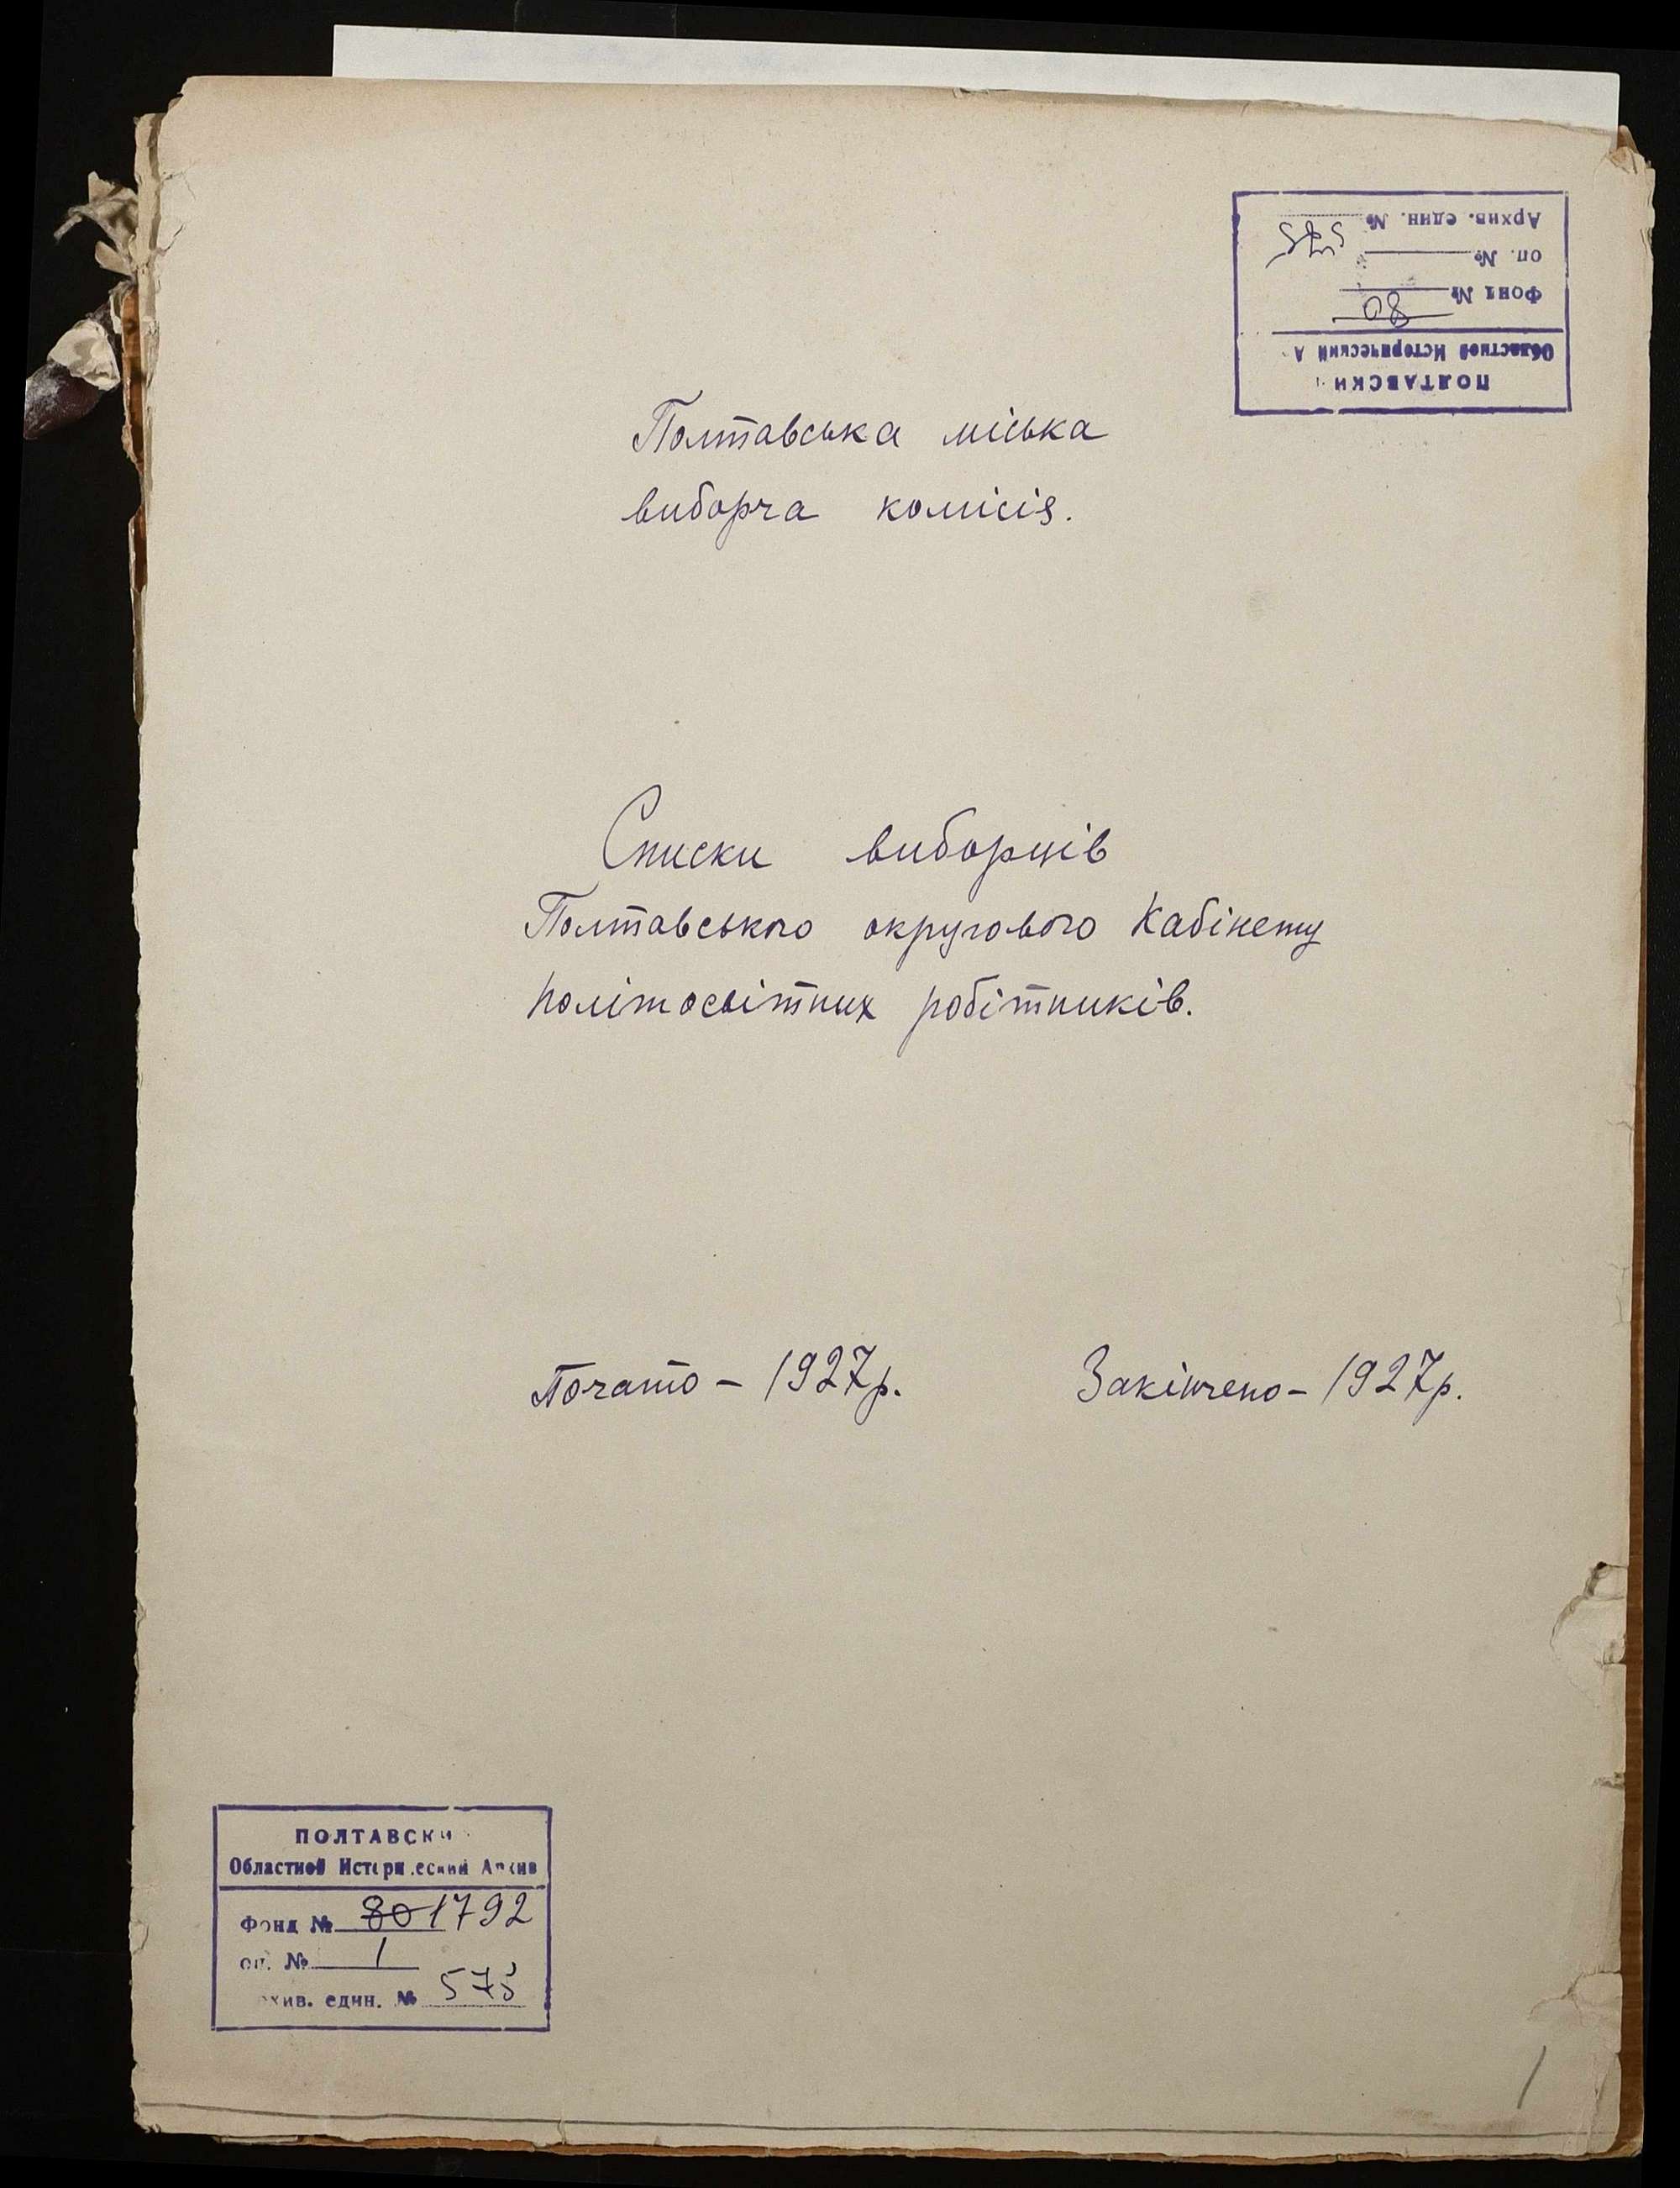 ПОЛТАВСКИ
Областной Исторический А
Фонд № 80
оп. №
Архив. един. № 575
Полтавська міська
виборча комісія.
Списки виборців
Полтавського округового Кабінету
політосвітних робітників.
Почато – 1927р. Закінчено – 1927р.
ПОЛТАВСКИ
Областной Исторический Архив
Фонд № 80 1792
оп. № 1
хив. един. № 575
1